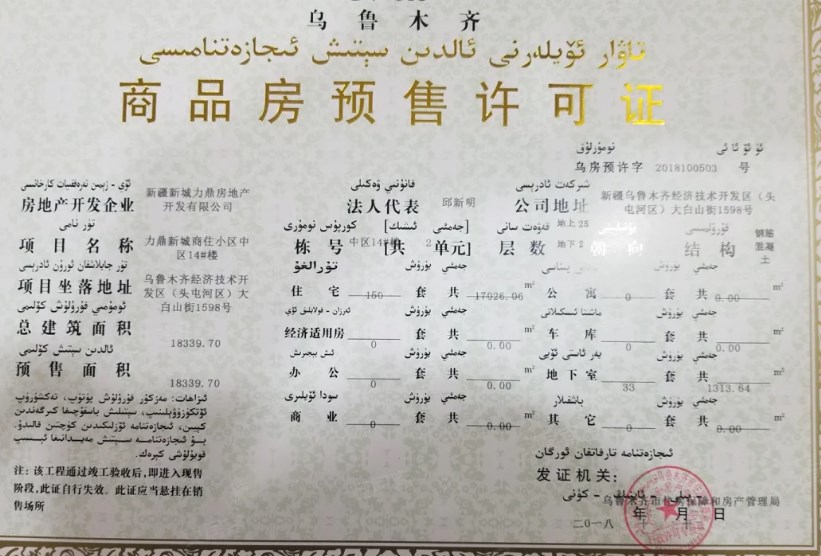 乌鲁木齐
تاۋار ئۆيلەرنى ئالدىن سېتىش ئىجازەتنامىسى
商品房预售许可证
نومۇرلۇق
乌房预许字 2018100503 号
شىركەت ئادرېسى
قانۇنىي ۋەكىلى
房地产开发企业 新疆新城力鼎房地产开发有限公司 法人代表 邱新明 公司地址 新疆乌鲁木齐经济技术开发区(头屯河区)大白山街1598号
تۈر نامى
كورپۇس نومۇرى [جەمئىي ئىشىك] قەۋەت سانى
项目名称 力鼎新城商住小区中区14#楼 栋号 中区14#楼 [共 2 单元] 层数 地上25 地下2 朝向 结构 钢筋混凝土
تۈر جايلاشقان ئورۇن ئادرېسى
项目坐落地址 乌鲁木齐经济技术开发区(头屯河区)大白山街1598号
تۇرالغۇ جەمئىي يۈرۈش
住宅 150 套 共 17026.06 m² 公寓 0 套 共 0.00 m²
ئومۇمىي قۇرۇلۇش كۆلىمى
总建筑面积 18339.70
经济适用房 0 套 共 0.00 m² 车库 0 套 共 0.00 m²
ئالدىن سېتىش كۆلىمى
预售面积 18339.70
办公 0 套 共 0.00 m² 地下室 33 套 共 1313.64 m²
سودا ئۆيلىرى جەمئىي يۈرۈش
باشقىلار جەمئىي يۈرۈش
商业 0 套 共 0.00 m² 其它 0 套 共 0.00 m²
注:该工程通过竣工验收后,即进入现售
阶段,此证自行失效。此证应当悬挂在销
售场所
ئىجازەتنامە تارقاتقان ئورگان
发证机关:
乌鲁木齐市住房保障和房产管理局
年 月 日